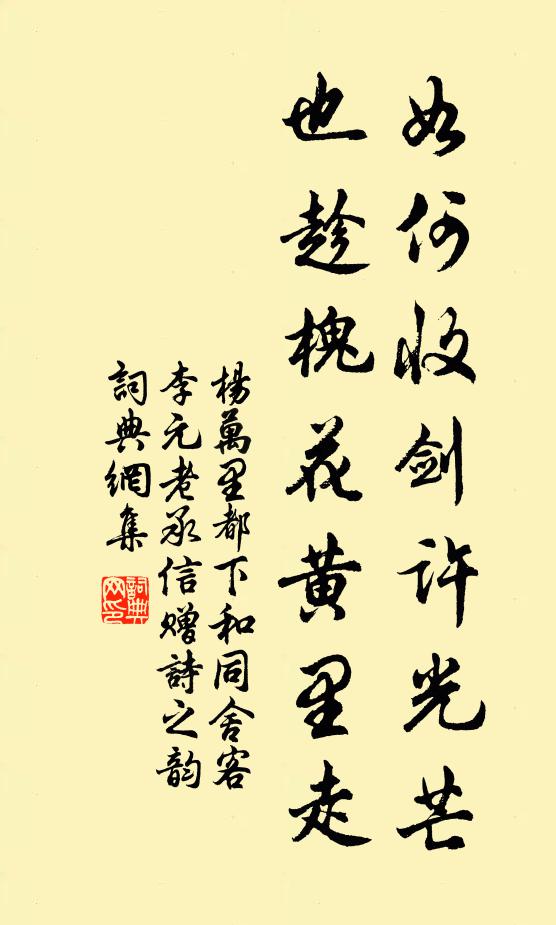 如何收剑许光芒
也趁槐花黄里走
楊萬里都下和同舍客
李元老承信赠詩之韵
詞典網集
詞典網印